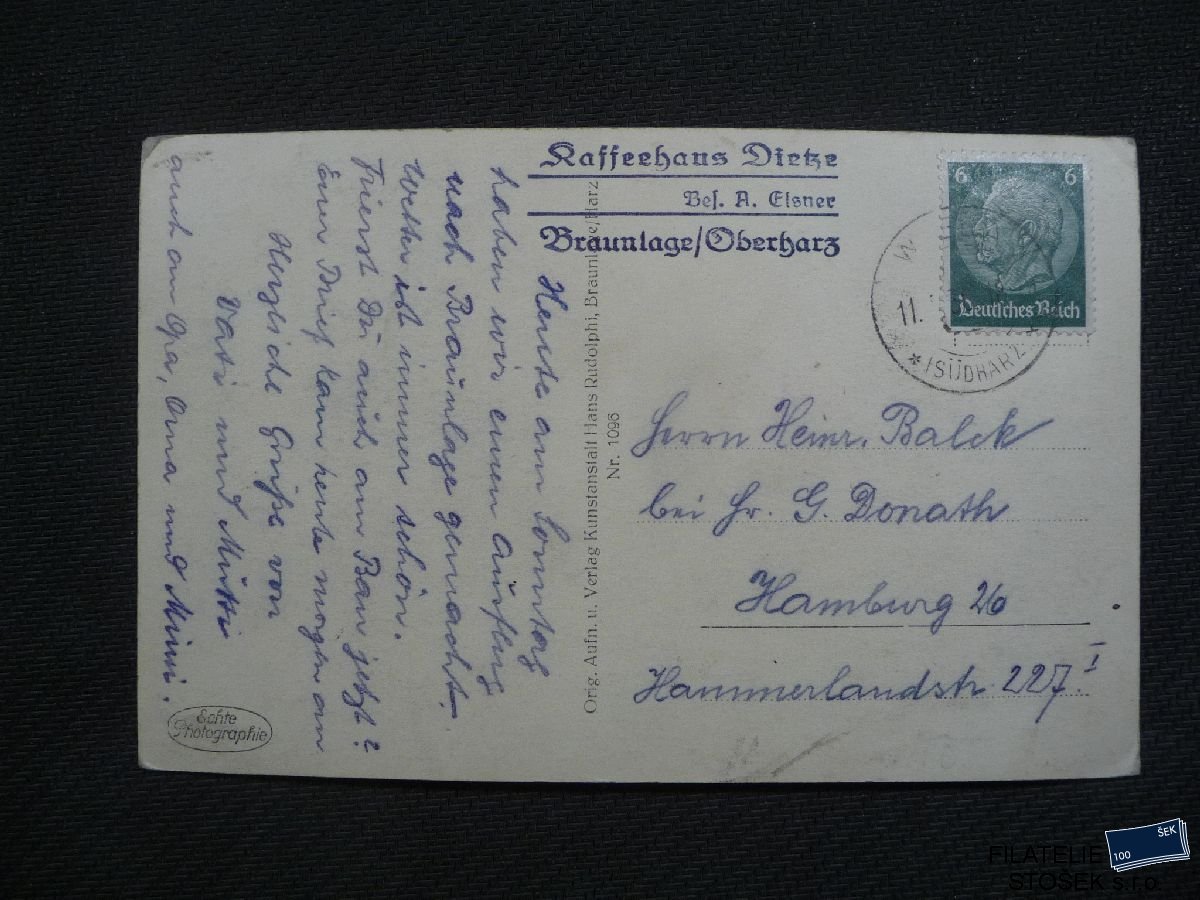 Kaffeehaus Dietze
Bes. A. Elsner
Braunlage/Oberharz
6 6
Deutsches Reich
W
11.
* (SÜDHARZ)
Heute am Sonntag
haben wir einen Ausflug
nach Braunlage gemacht.
Wetter ist immer schön.
Frierst Du auch am Ban jetzt?
Euer Brief kam heute morgen an
Herzliche Grüße von
Vati und Mutti
auch an Opa, Oma und Mimi.
Orig. Aufn. u. Verlag Kunstanstalt Hans Rudolphi, Braunlage/Harz
Nr. 1096
Herrn Heinr. Balck
bei Hr. G. Donath
Hamburg 26
Hammerlandstr. 227 I
Echte
Photographie
100 ŠEK
FILATELIE
STOSEK s.r.o.